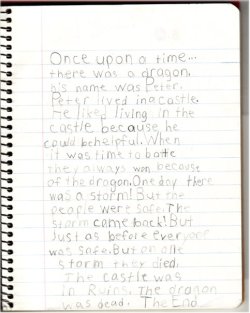 Once upon a time...
there was a dragon.
his name was Peter.
Peter lived in a castle.
He liked living in the
castle because he
could be helpful. When
it was time to batte
they always won because
of the dragon. One day there
was a storm! But the
people were safe. The
storm came back! But
Just as before everyone
was safe. But on one
storm they died.
The castle was
in Ruins. The dragon
was dead. The End